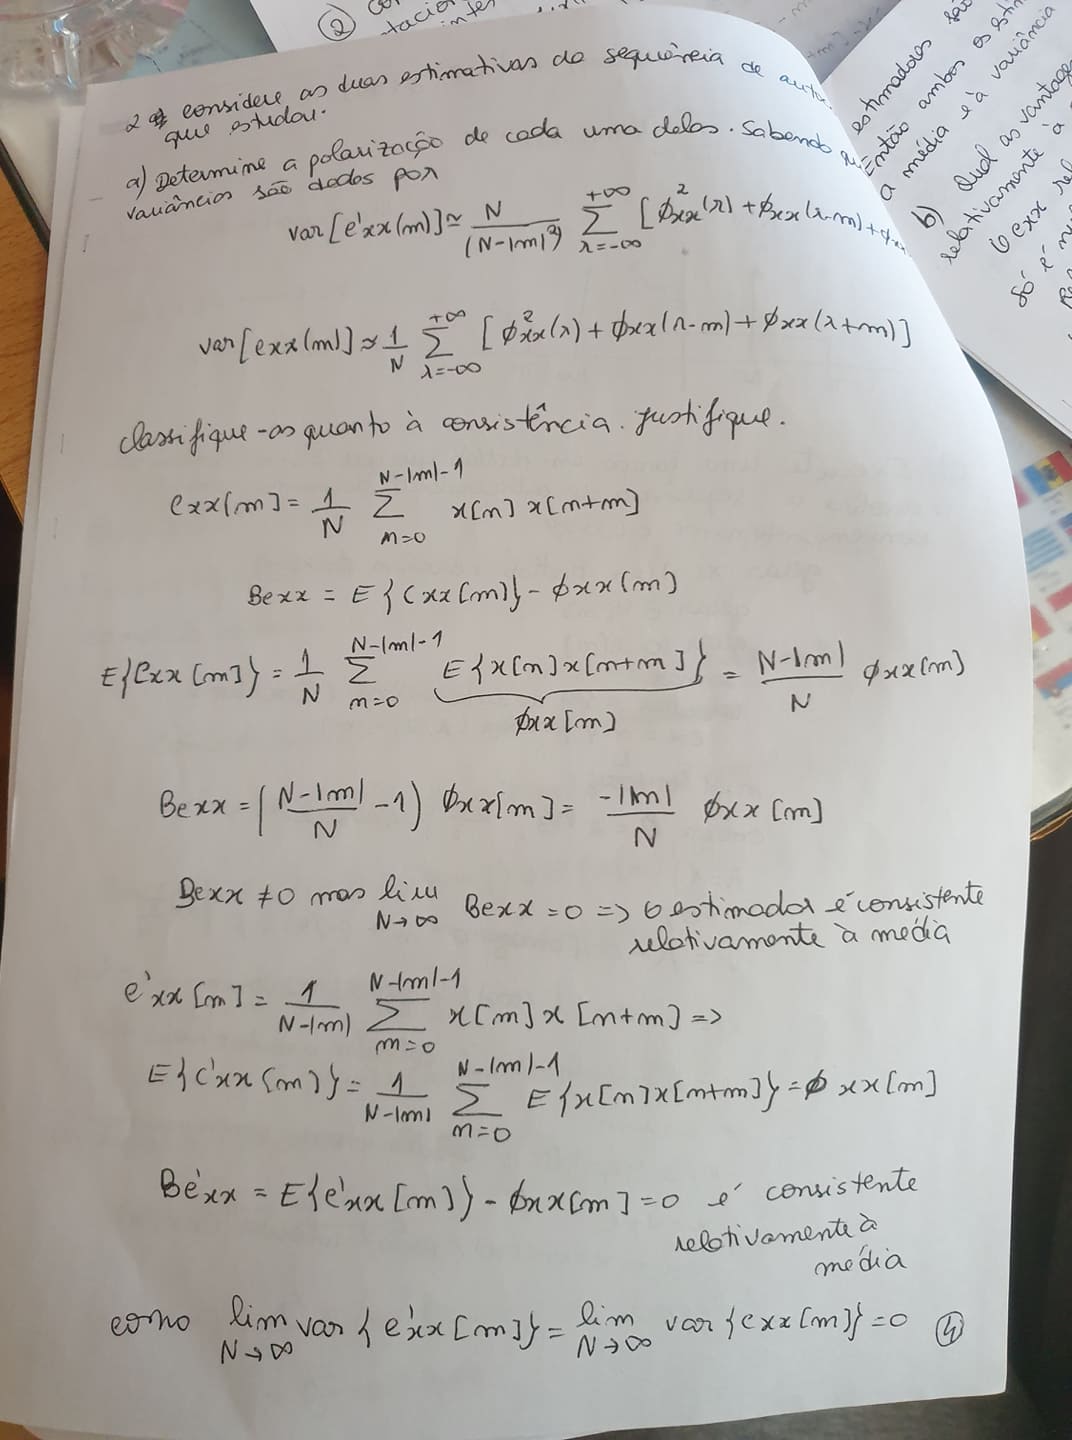 2 considere as duas estimativas da sequência de auto
que estudou.
a) Determine a polarização de cada uma delas. Sabendo
variâncias são dados por
var[c'xx(m)] ≈ N/(N-|m|)² Σ_{λ=-∞}^{+∞} [ϕ²xx(λ) + ϕxx(λ-m) +
var[cxx(m)] ≈ 1/N Σ_{λ=-∞}^{+∞} [ϕ²xx(λ) + ϕxx(λ-m) + ϕxx(λ+m)]
classifique-os quanto à consistência. Justifique.
Cxx[m] = 1/N Σ_{n=0}^{N-|m|-1} x[n] x[n+m]
Bcxx = E{Cxx[m]} - ϕxx[m]
E{Cxx[m]} = 1/N Σ_{n=0}^{N-|m|-1} E{x[n]x[n+m]} = N-|m|/N ϕxx[m]
ϕxx[m]
Bcxx = (N-|m|/N - 1) ϕxx[m] = -|m|/N ϕxx[m]
Bcxx ≠ 0 mas lim_{N→∞} Bcxx = 0 => O estimador é consistente
relativamente à média
c'xx[m] = 1/N-|m| Σ_{n=0}^{N-|m|-1} x[n] x[n+m] =>
E{C'xx[m]} = 1/N-|m| Σ_{n=0}^{N-|m|-1} E{x[n]x[n+m]} = ϕxx[m]
Bc'xx = E{c'xx[m]} - ϕxx[m] = 0 é consistente
relativamente à
média
como lim_{N→∞} var{c'xx[m]} = lim_{N→∞} var{cxx[m]} = 0 ④
②
estimadores são
Então ambos os esti
a média e à variância
b) Qual as vantage
relativamente à
O cxx rel
só é